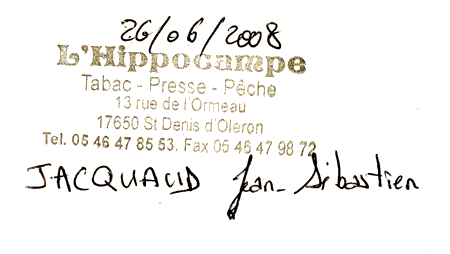 26/06/2008
L'Hippocampe
Tabac - Presse - Pêche
13 rue de l'Ormeau
17650 St Denis d'Oleron
Tel. 05 46 47 85 53. Fax 05 46 47 98 72
JACQUAUD Jean-Sébastien